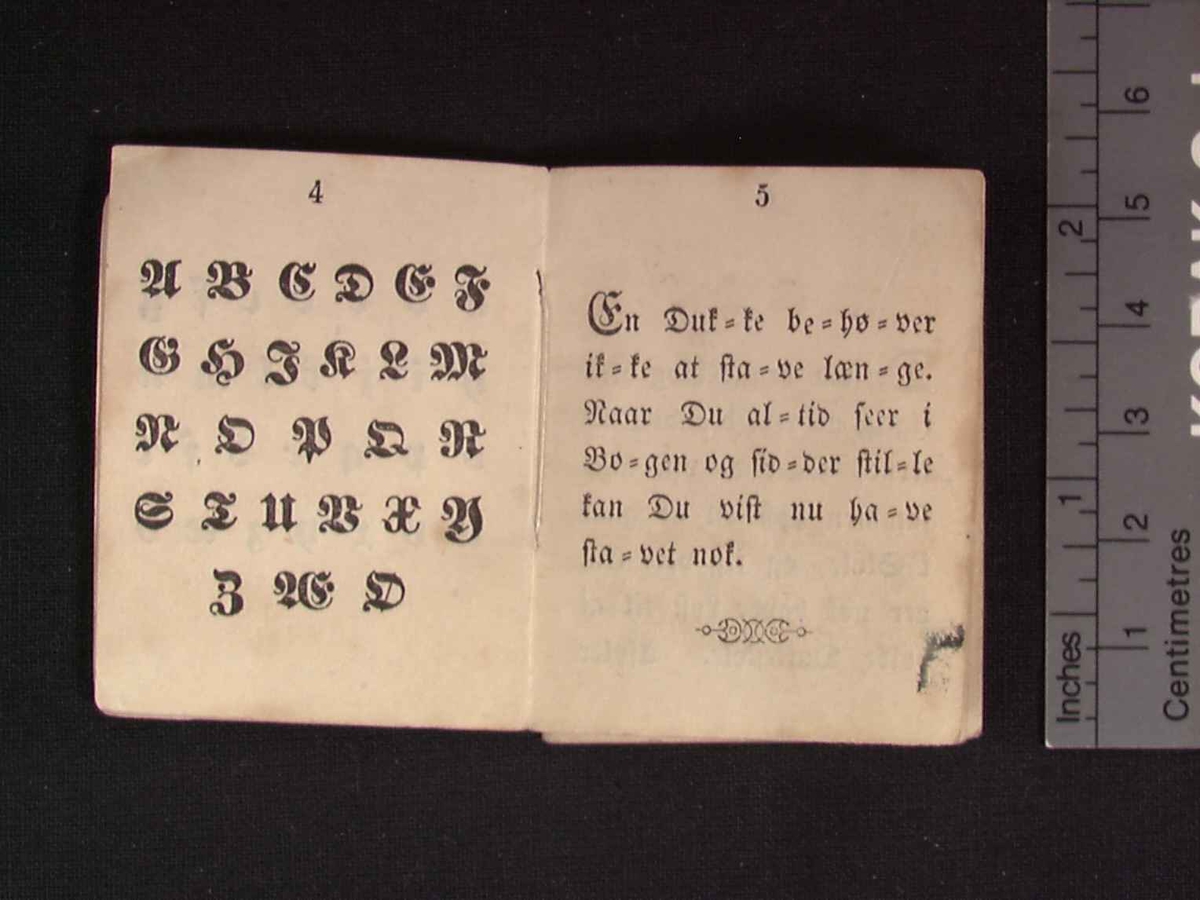 4
A B C D E F
G H I K L M
N O P Q R
S T U V X Y
Z Æ Ø
5
En Duk-ke be-hø-ver
ik-ke at sta-ve læn-ge.
Naar Du al-tid seer i
Bo-gen og sid-der stil-le
kan Du vist nu ha-ve
sta-vet nok.
Inches
1
2
Centimetres
1
2
3
4
5
6